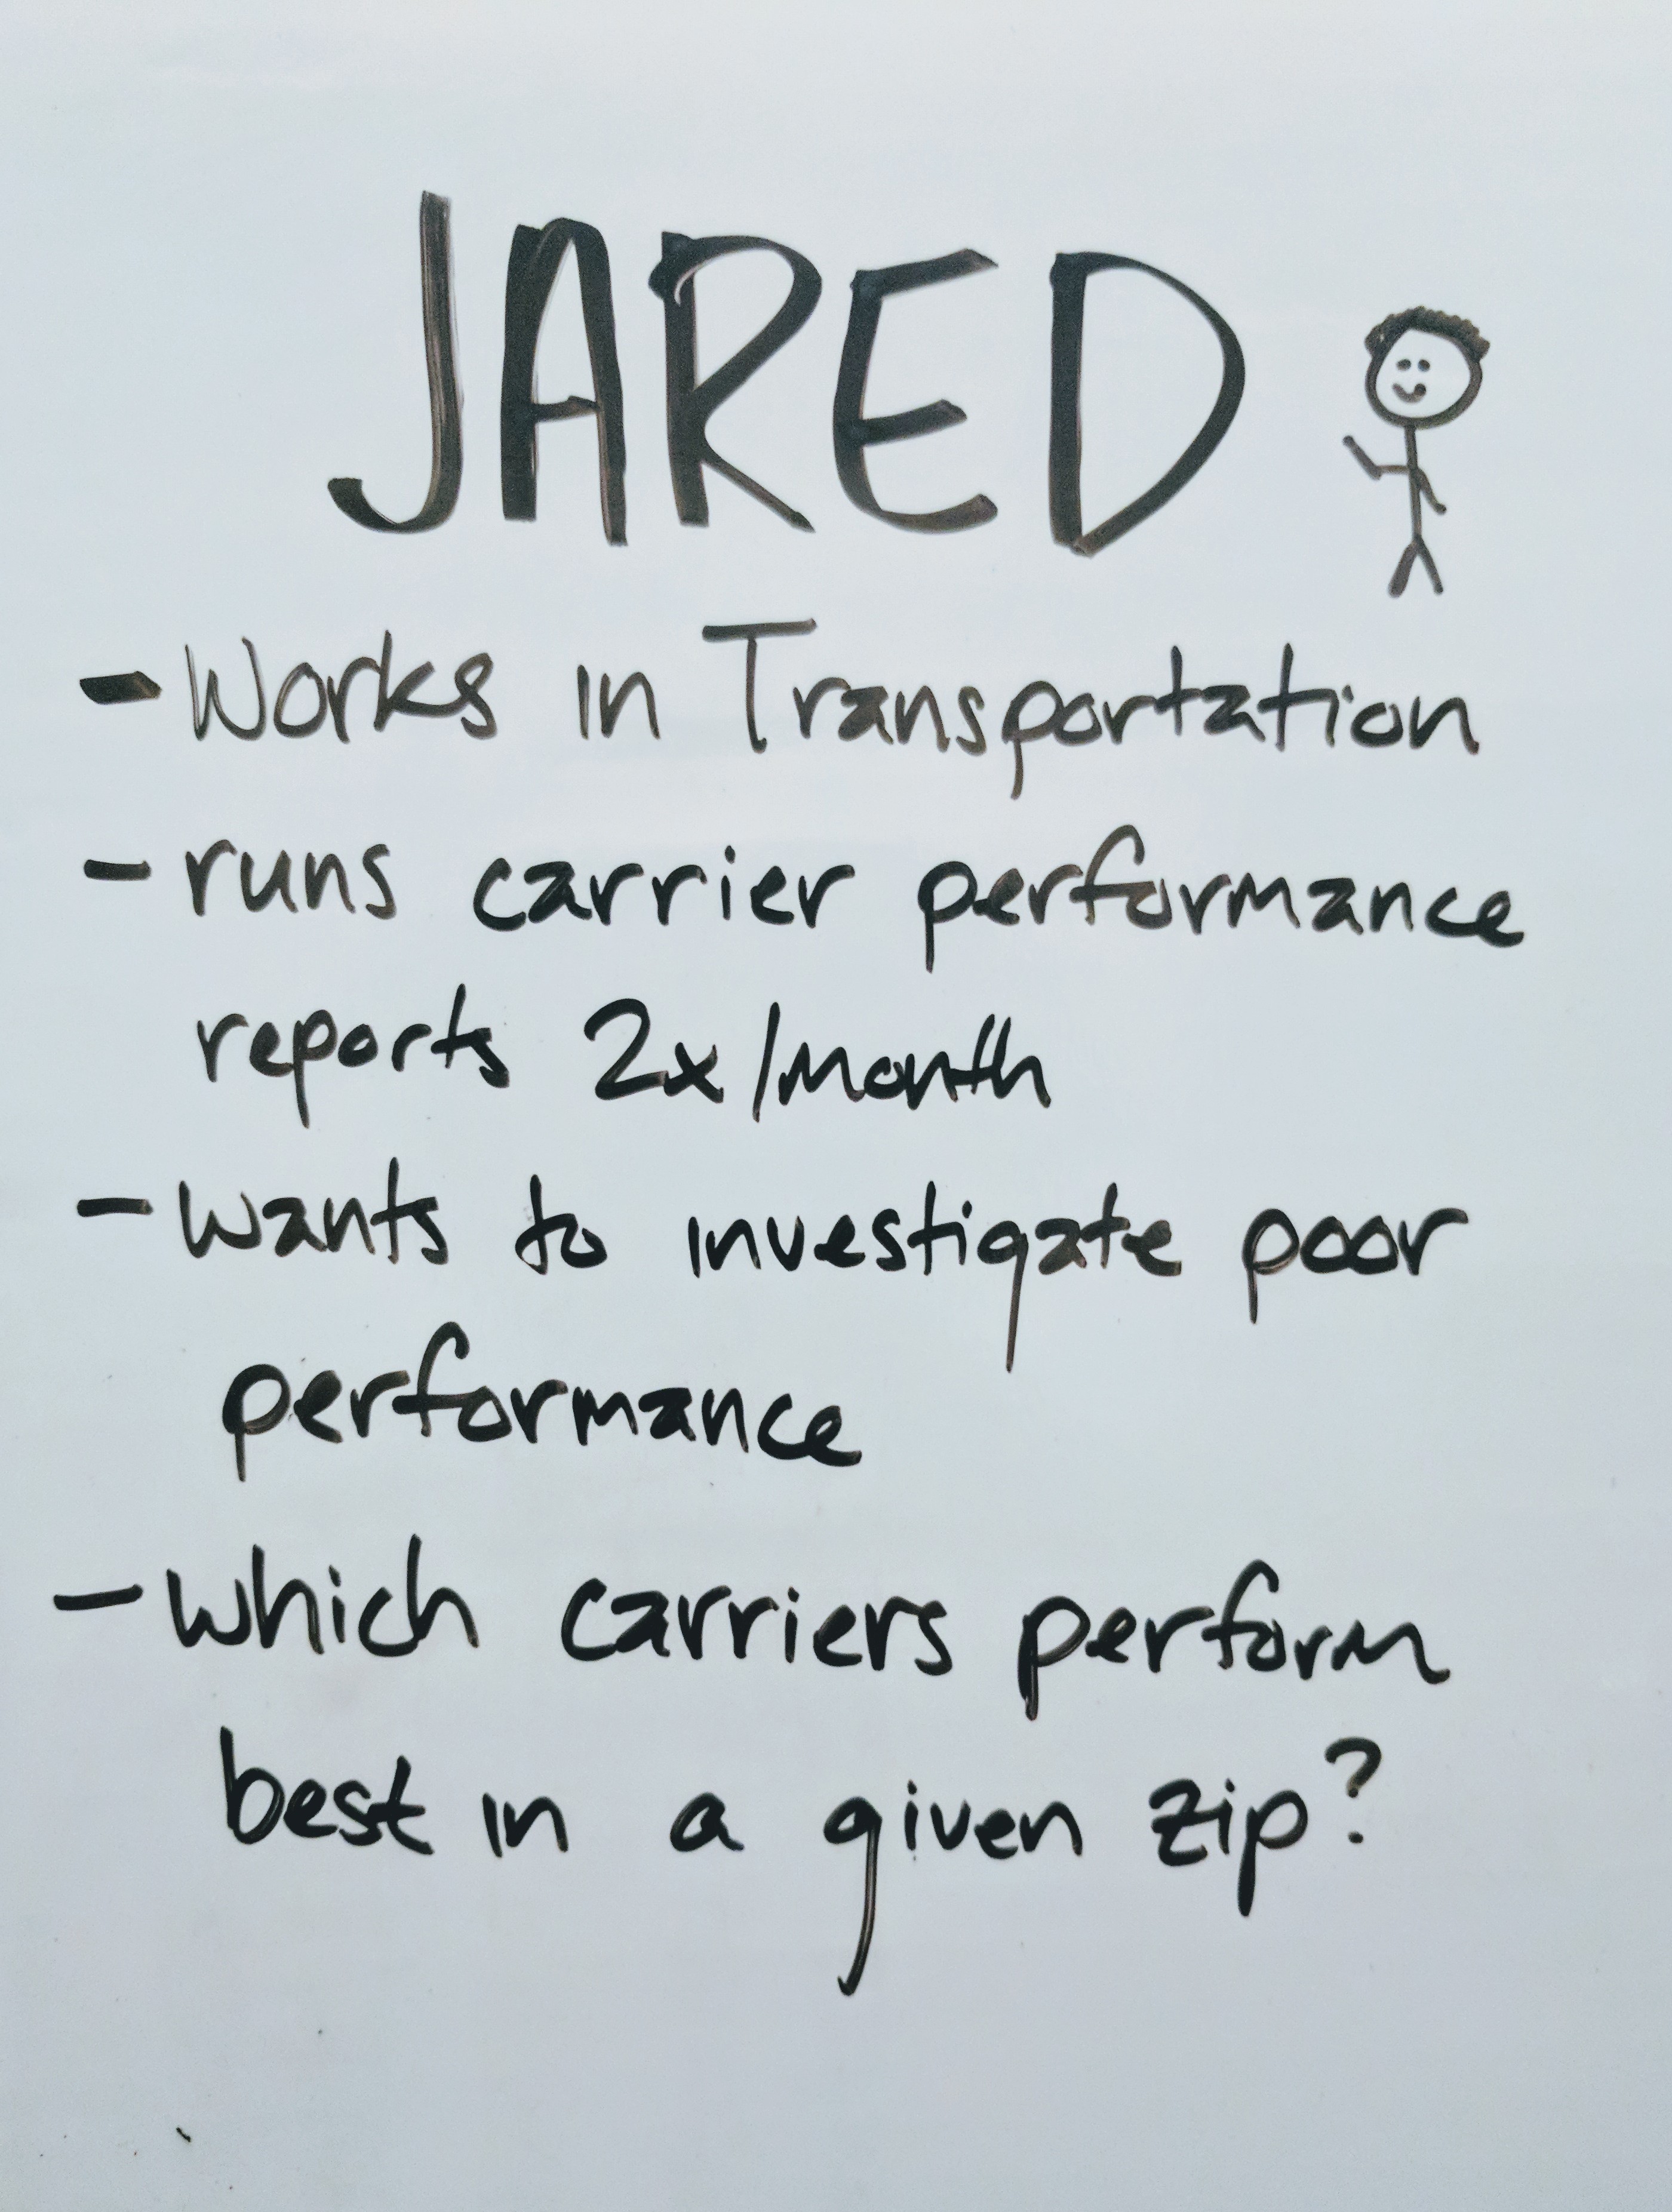 JARED
- Works in Transportation
- runs carrier performance
reports 2x/month
- wants to investigate poor
performance
- which carriers perform
best in a given zip?